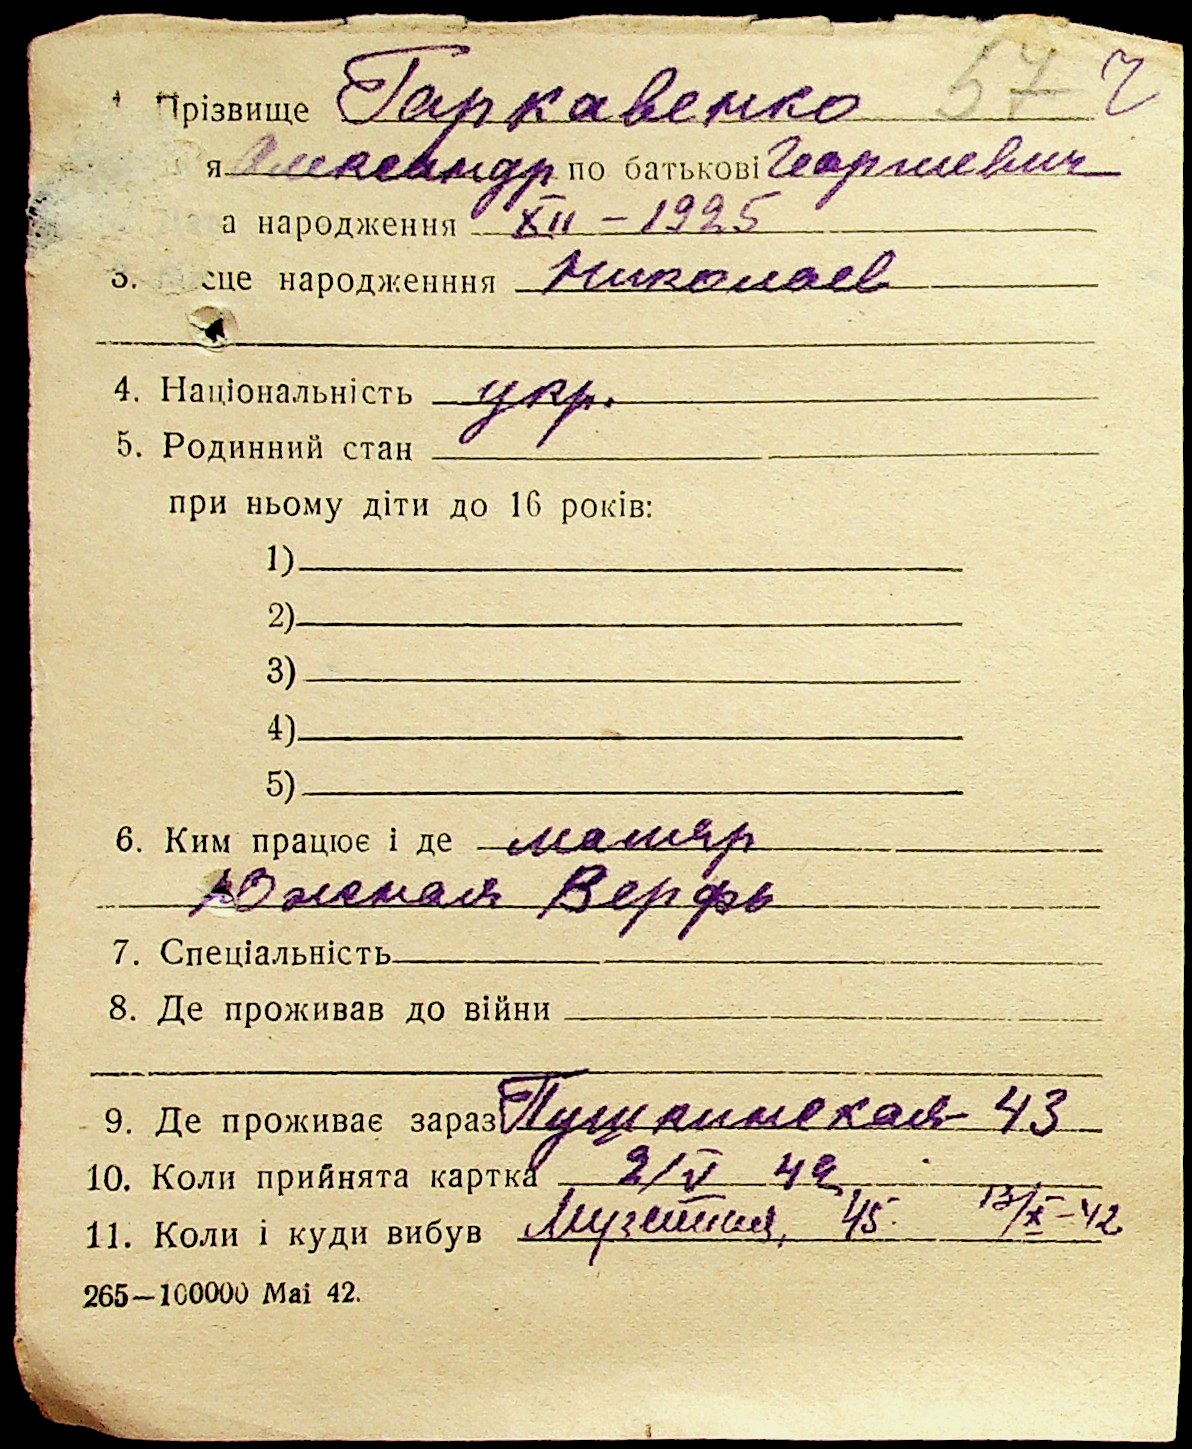 57 Ч
1 Прізвище Гаркавенко
я Александр по батькові Георгиевич
а народження XII – 1925
3. сце народженння Николаев
4. Національність укр.
5. Родинний стан
при ньому діти до 16 років:
1)
2)
3)
4)
5)
6. Ким працює і де маляр
Южная Верфь
7. Спеціальність
8. Де проживав до війни
9. Де проживає зараз Пушкинская 43
10. Коли прийнята картка 2/V 42
11. Коли і куди вибув 45 13/X-42
265—100000 Mai 42.